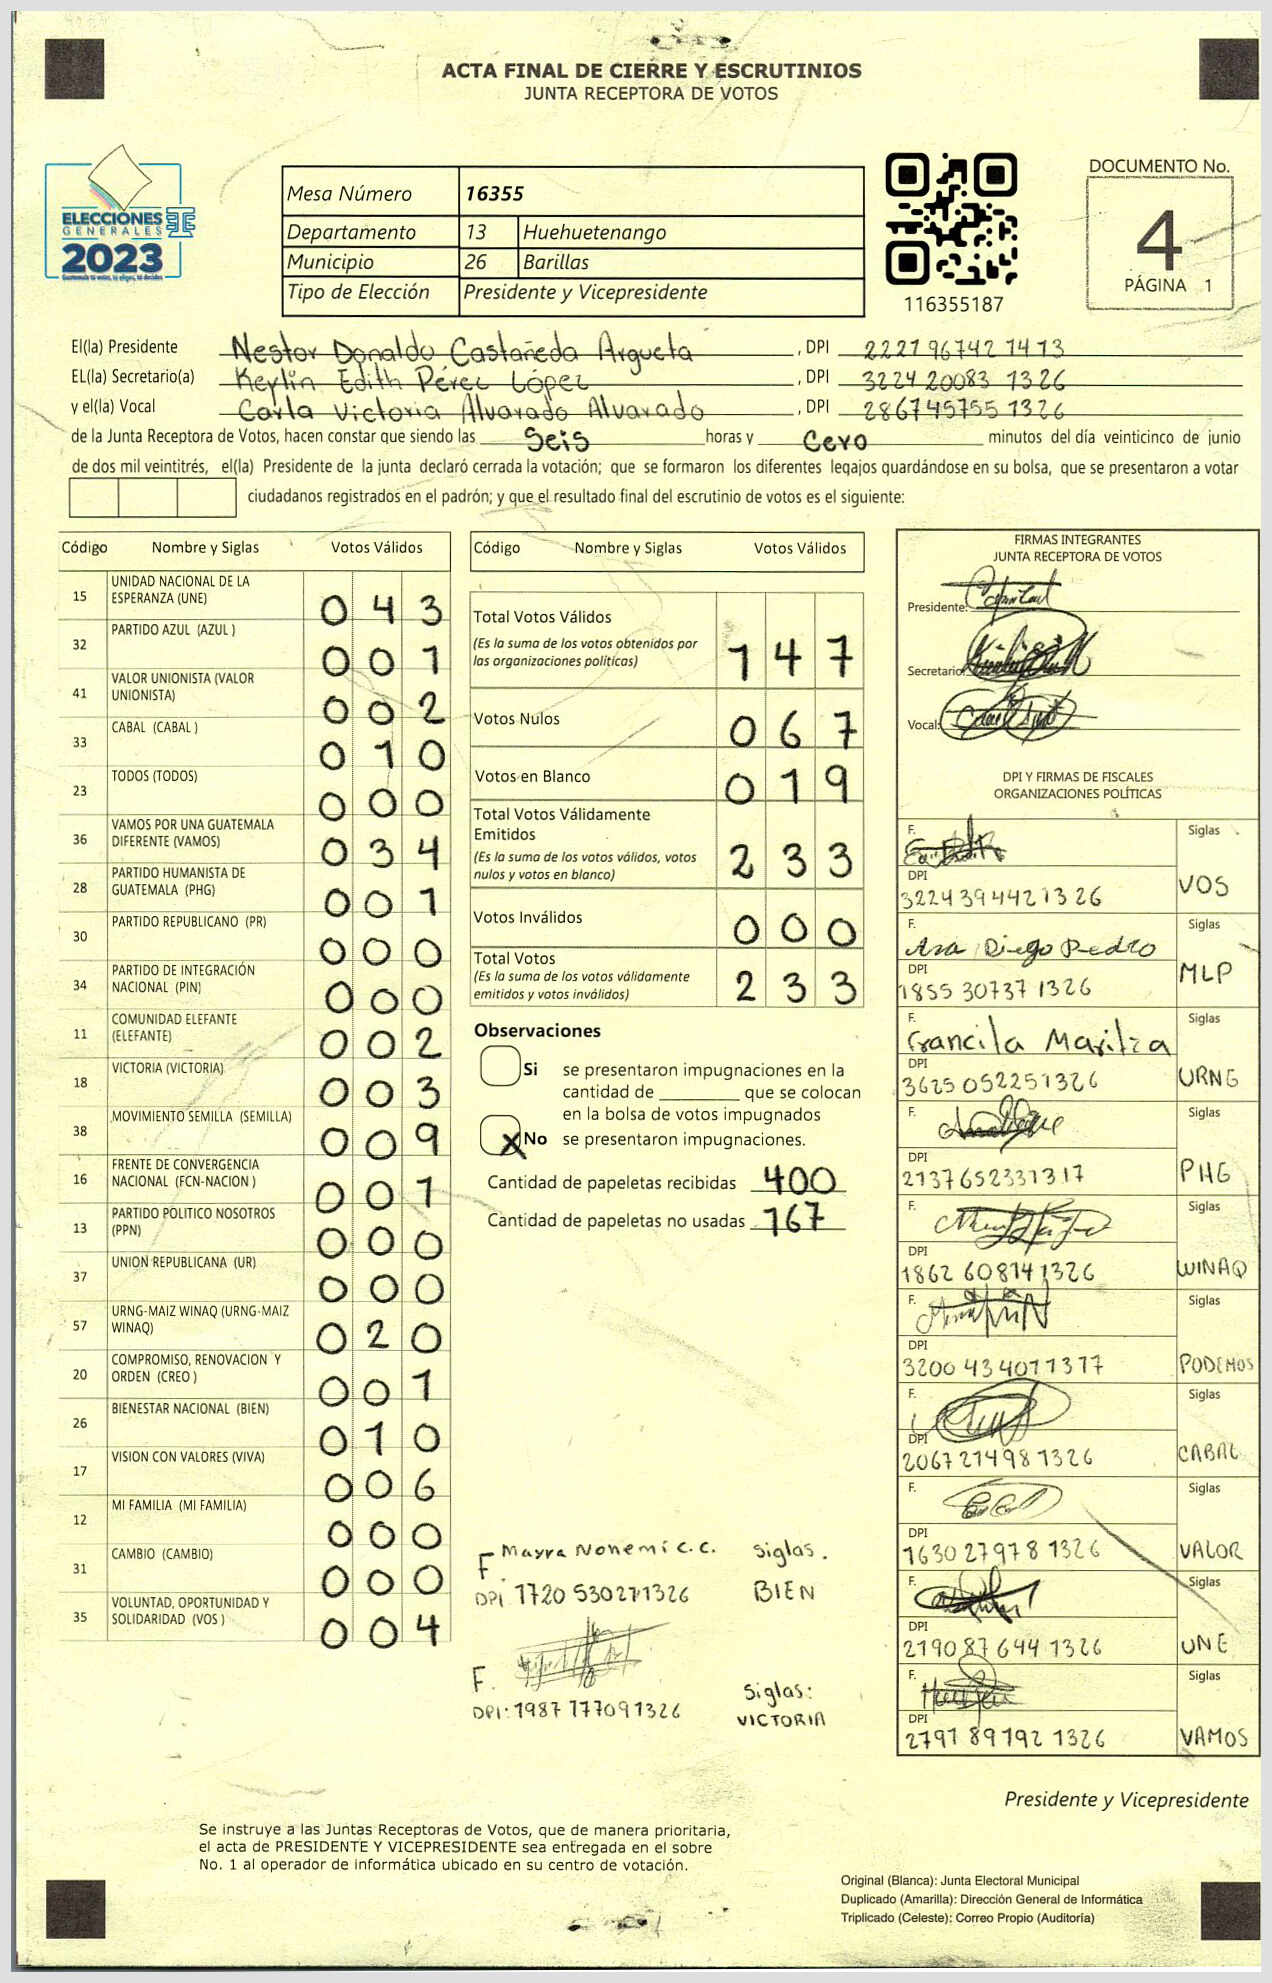 ACTA FINAL DE CIERRE Y ESCRUTINIOS
JUNTA RECEPTORA DE VOTOS
ELECCIONES
GENERALES
2023
Mesa Número 16355
Departamento 13 Huehuetenango
Municipio 26 Barillas
Tipo de Elección Presidente y Vicepresidente
116355187
DOCUMENTO No.
4
PÁGINA 1
El(la) Presidente Nestor Donaldo Castañeda Argueta, DPI 2221 96742 1413
EL(la) Secretario(a) Keylin Edith Pérez López, DPI 3224 20083 1326
y el(la) Vocal Carla Victoria Alvarado Alvarado, DPI 286745755 1326
de la Junta Receptora de Votos, hacen constar que siendo las Seis horas y Cero minutos del día veinticinco de junio
de dos mil veintitrés, el(la) Presidente de la junta declaró cerrada la votación; que se formaron los diferentes legajos guardándose en su bolsa, que se presentaron a votar
ciudadanos registrados en el padrón; y que el resultado final del escrutinio de votos es el siguiente:
Código Nombre y Siglas Votos Válidos
15 UNIDAD NACIONAL DE LA ESPERANZA (UNE) 043
32 PARTIDO AZUL (AZUL ) 001
41 VALOR UNIONISTA (VALOR UNIONISTA) 002
33 CABAL (CABAL ) 010
23 TODOS (TODOS) 000
36 VAMOS POR UNA GUATEMALA DIFERENTE (VAMOS) 034
28 PARTIDO HUMANISTA DE GUATEMALA (PHG) 001
30 PARTIDO REPUBLICANO (PR) 000
34 PARTIDO DE INTEGRACIÓN NACIONAL (PIN) 000
11 COMUNIDAD ELEFANTE (ELEFANTE) 002
18 VICTORIA (VICTORIA) 003
38 MOVIMIENTO SEMILLA (SEMILLA) 009
16 FRENTE DE CONVERGENCIA NACIONAL (FCN-NACION ) 001
13 PARTIDO POLITICO NOSOTROS (PPN) 000
37 UNION REPUBLICANA (UR) 000
57 URNG-MAIZ WINAQ (URNG-MAIZ WINAQ) 020
20 COMPROMISO, RENOVACION Y ORDEN (CREO ) 001
26 BIENESTAR NACIONAL (BIEN) 010
17 VISION CON VALORES (VIVA) 006
12 MI FAMILIA (MI FAMILIA) 000
31 CAMBIO (CAMBIO) 000
35 VOLUNTAD, OPORTUNIDAD Y SOLIDARIDAD (VOS ) 004
Código Nombre y Siglas Votos Válidos
Total Votos Válidos
(Es la suma de los votos obtenidos por
las organizaciones políticas) 147
Votos Nulos 067
Votos en Blanco 019
Total Votos Válidamente
Emitidos
(Es la suma de los votos válidos, votos
nulos y votos en blanco) 233
Votos Inválidos 000
Total Votos
(Es la suma de los votos válidamente
emitidos y votos inválidos) 233
Observaciones
Si se presentaron impugnaciones en la
cantidad de ________ que se colocan
en la bolsa de votos impugnados
X No se presentaron impugnaciones.
Cantidad de papeletas recibidas 400
Cantidad de papeletas no usadas 167
F. Mayra Nohemí C.C. Siglas.
DPI 1720 530271326 BIEN
F. Siglas:
DPI: 1987 177091326 VICTORIA
FIRMAS INTEGRANTES
JUNTA RECEPTORA DE VOTOS
Presidente:
Secretario:
Vocal:
DPI Y FIRMAS DE FISCALES
ORGANIZACIONES POLÍTICAS
F. Siglas
DPI
3224394421326 VOS
F. Ana Diego Pedro Siglas
DPI
1855 30737 1326 MLP
F. Francila Maritza Siglas
DPI
3625 052251326 URNG
F. Siglas
DPI
2137652331317 PHG
F. Siglas
DPI
1862 608141326 WINAQ
F. Siglas
DPI
3200 434011317 PODEMOS
F. Siglas
DPI
2067214981326 CABAL
F. Siglas
DPI
1630 27978 1326 VALOR
F. Siglas
DPI
219087644 1326 UNE
F. Siglas
DPI
2797 89792 1326 VAMOS
Presidente y Vicepresidente
Se instruye a las Juntas Receptoras de Votos, que de manera prioritaria,
el acta de PRESIDENTE Y VICEPRESIDENTE sea entregada en el sobre
No. 1 al operador de informática ubicado en su centro de votación.
Original (Blanca): Junta Electoral Municipal
Duplicado (Amarilla): Dirección General de Informática
Triplicado (Celeste): Correo Propio (Auditoría)